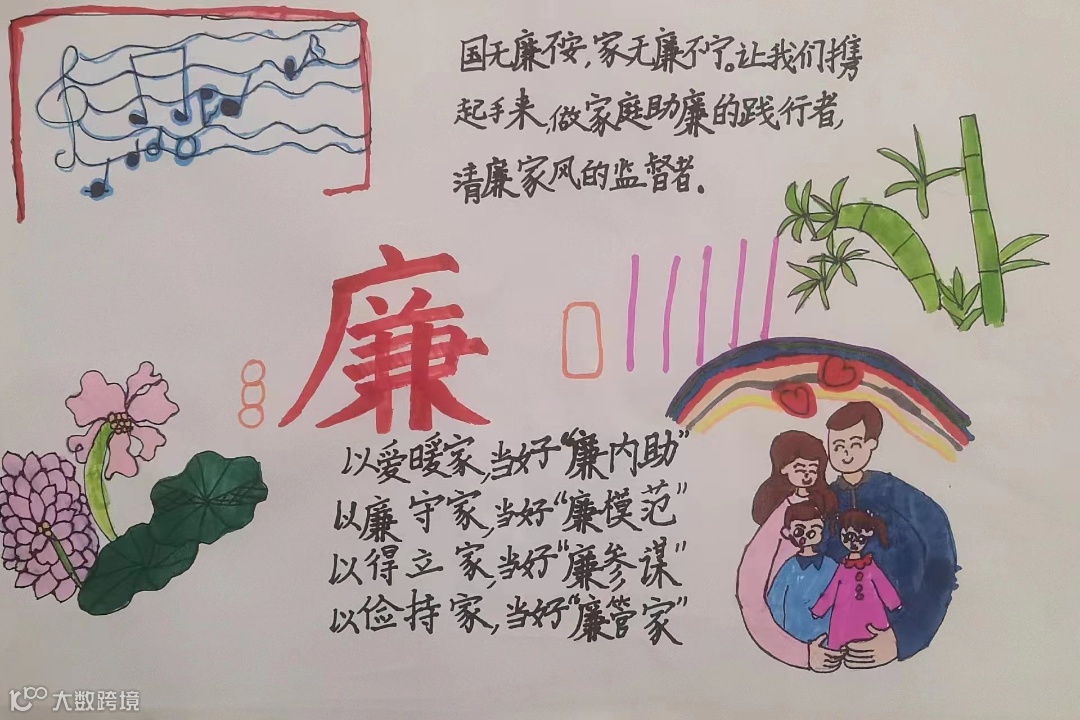 国无廉不安,家无廉不宁。让我们携
起手来,做家庭助廉的践行者,
清廉家风的监督者.
廉
以爱暖家,当好“廉内助”
以廉守家,当好“廉模范”
以得立家,当好“廉参谋”
以俭持家,当好“廉管家”
大数跨境